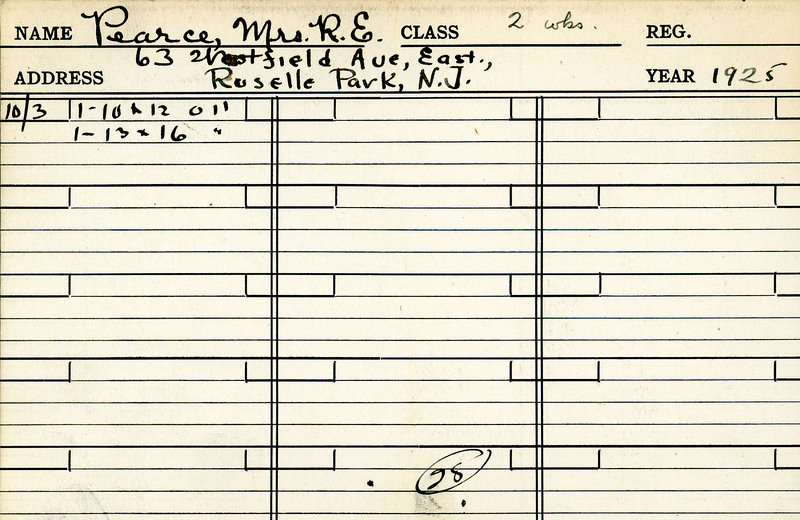 NAME Pearce, Mrs. R. E. CLASS 2 wks. REG.
63 Westfield Ave, East.,
ADDRESS Roselle Park, N.J. YEAR 1925
10/3 1-10 x 12 oil
1-13 x 16 "
28